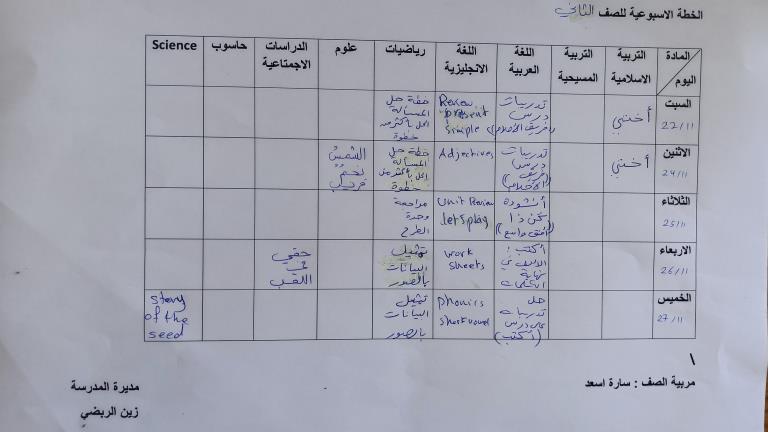 الخطة الاسبوعية للصف الثاني
المادة
اليوم
التربية الاسلامية
التربية المسيحية
اللغة العربية
اللغة الانجليزية
رياضيات
علوم
الدراسات الاجتماعية
حاسوب
Science
السبت
22/11
أختي
تدريبات
درس
Review
present
simple
خطة حل
المسألة
الحل بأكثر من
خطوة
الاثنين
24/11
أختي
تدريبات
درس
Adjectives
خطة حل
المسألة
الحل بأكثر من
خطوة
الشمسُ
نجمٌ
الثلاثاء
25/11
أنشودة
كن ذا
(أفق واسع)
Unit Review
let's play
مراجعة
وحدة
الطرح
الاربعاء
26/11
أكتب:
نهاية
الكلمات
work
sheets
تمثيل
البيانات
بالصور
حقي
في
اللعب
الخميس
27/11
حل
تدريبات
على درس
(أكتب)
phonics
short vowel
تمثيل
البيانات
بالصور
story
of the
seed
\
مربية الصف : سارة اسعد
مديرة المدرسة
زين الربضي